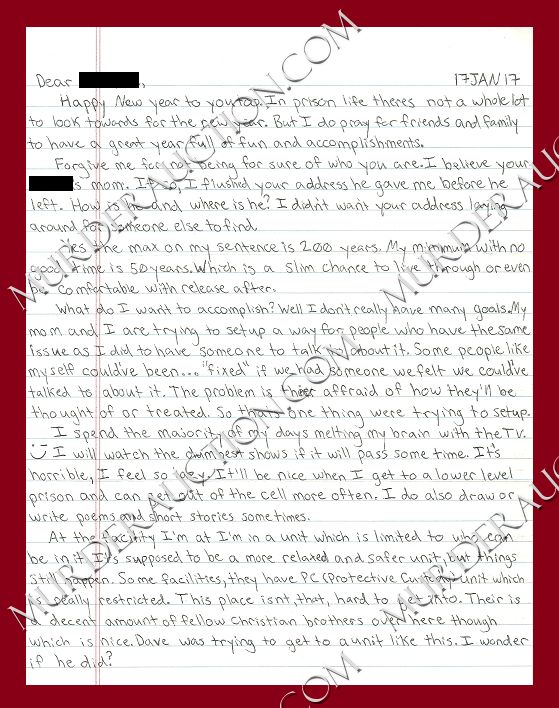 Dear , 17JAN17
Happy New year to you too. In prison life theres not a whole lot
to look towards for the new year. But I do pray for friends and family
to have a great year full of fun and accomplishments.
Forgive me for not being for sure of who you are. I believe your
's mom. If so, I flushed your address he gave me before he
left. How is he and where is he? I didn't want your address laying
around for someone else to find.
Yes the max on my sentence is 200 years. My minimum with no
good time is 50 years. Which is a slim chance to live through or even
be comfortable with release after.
What do I want to accomplish? Well I don't really have many goals. My
mom and I are trying to setup a way for people who have the same
issue as I did to have someone to talk to about it. Some people like
myself could've been... "fixed" if we had someone we felt we could've
talked to about it. The problem is their affraid of how they'll be
thought of or treated. So thats one thing were trying to setup.
I spend the majority of my days melting my brain with the TV.
I will watch the dumbest shows if it will pass some time. It's
horrible, I feel so lazy. It'll be nice when I get to a lower level
prison and can get out of the cell more often. I do also draw or
write poems and short stories sometimes.
At the facility I'm at I'm in a unit which is limited to who can
be in it. It's supposed to be a more related and safer unit, but things
still happen. Some facilities, they have PC (Protective Custody) unit which
really restricted. This place isnt, that, hard to get into. Their is
a decent amount of fellow Christian brothers over here though
which is nice. Dave was trying to get to a unit like this. I wonder
if he did?
MURDERAUCTION.COM